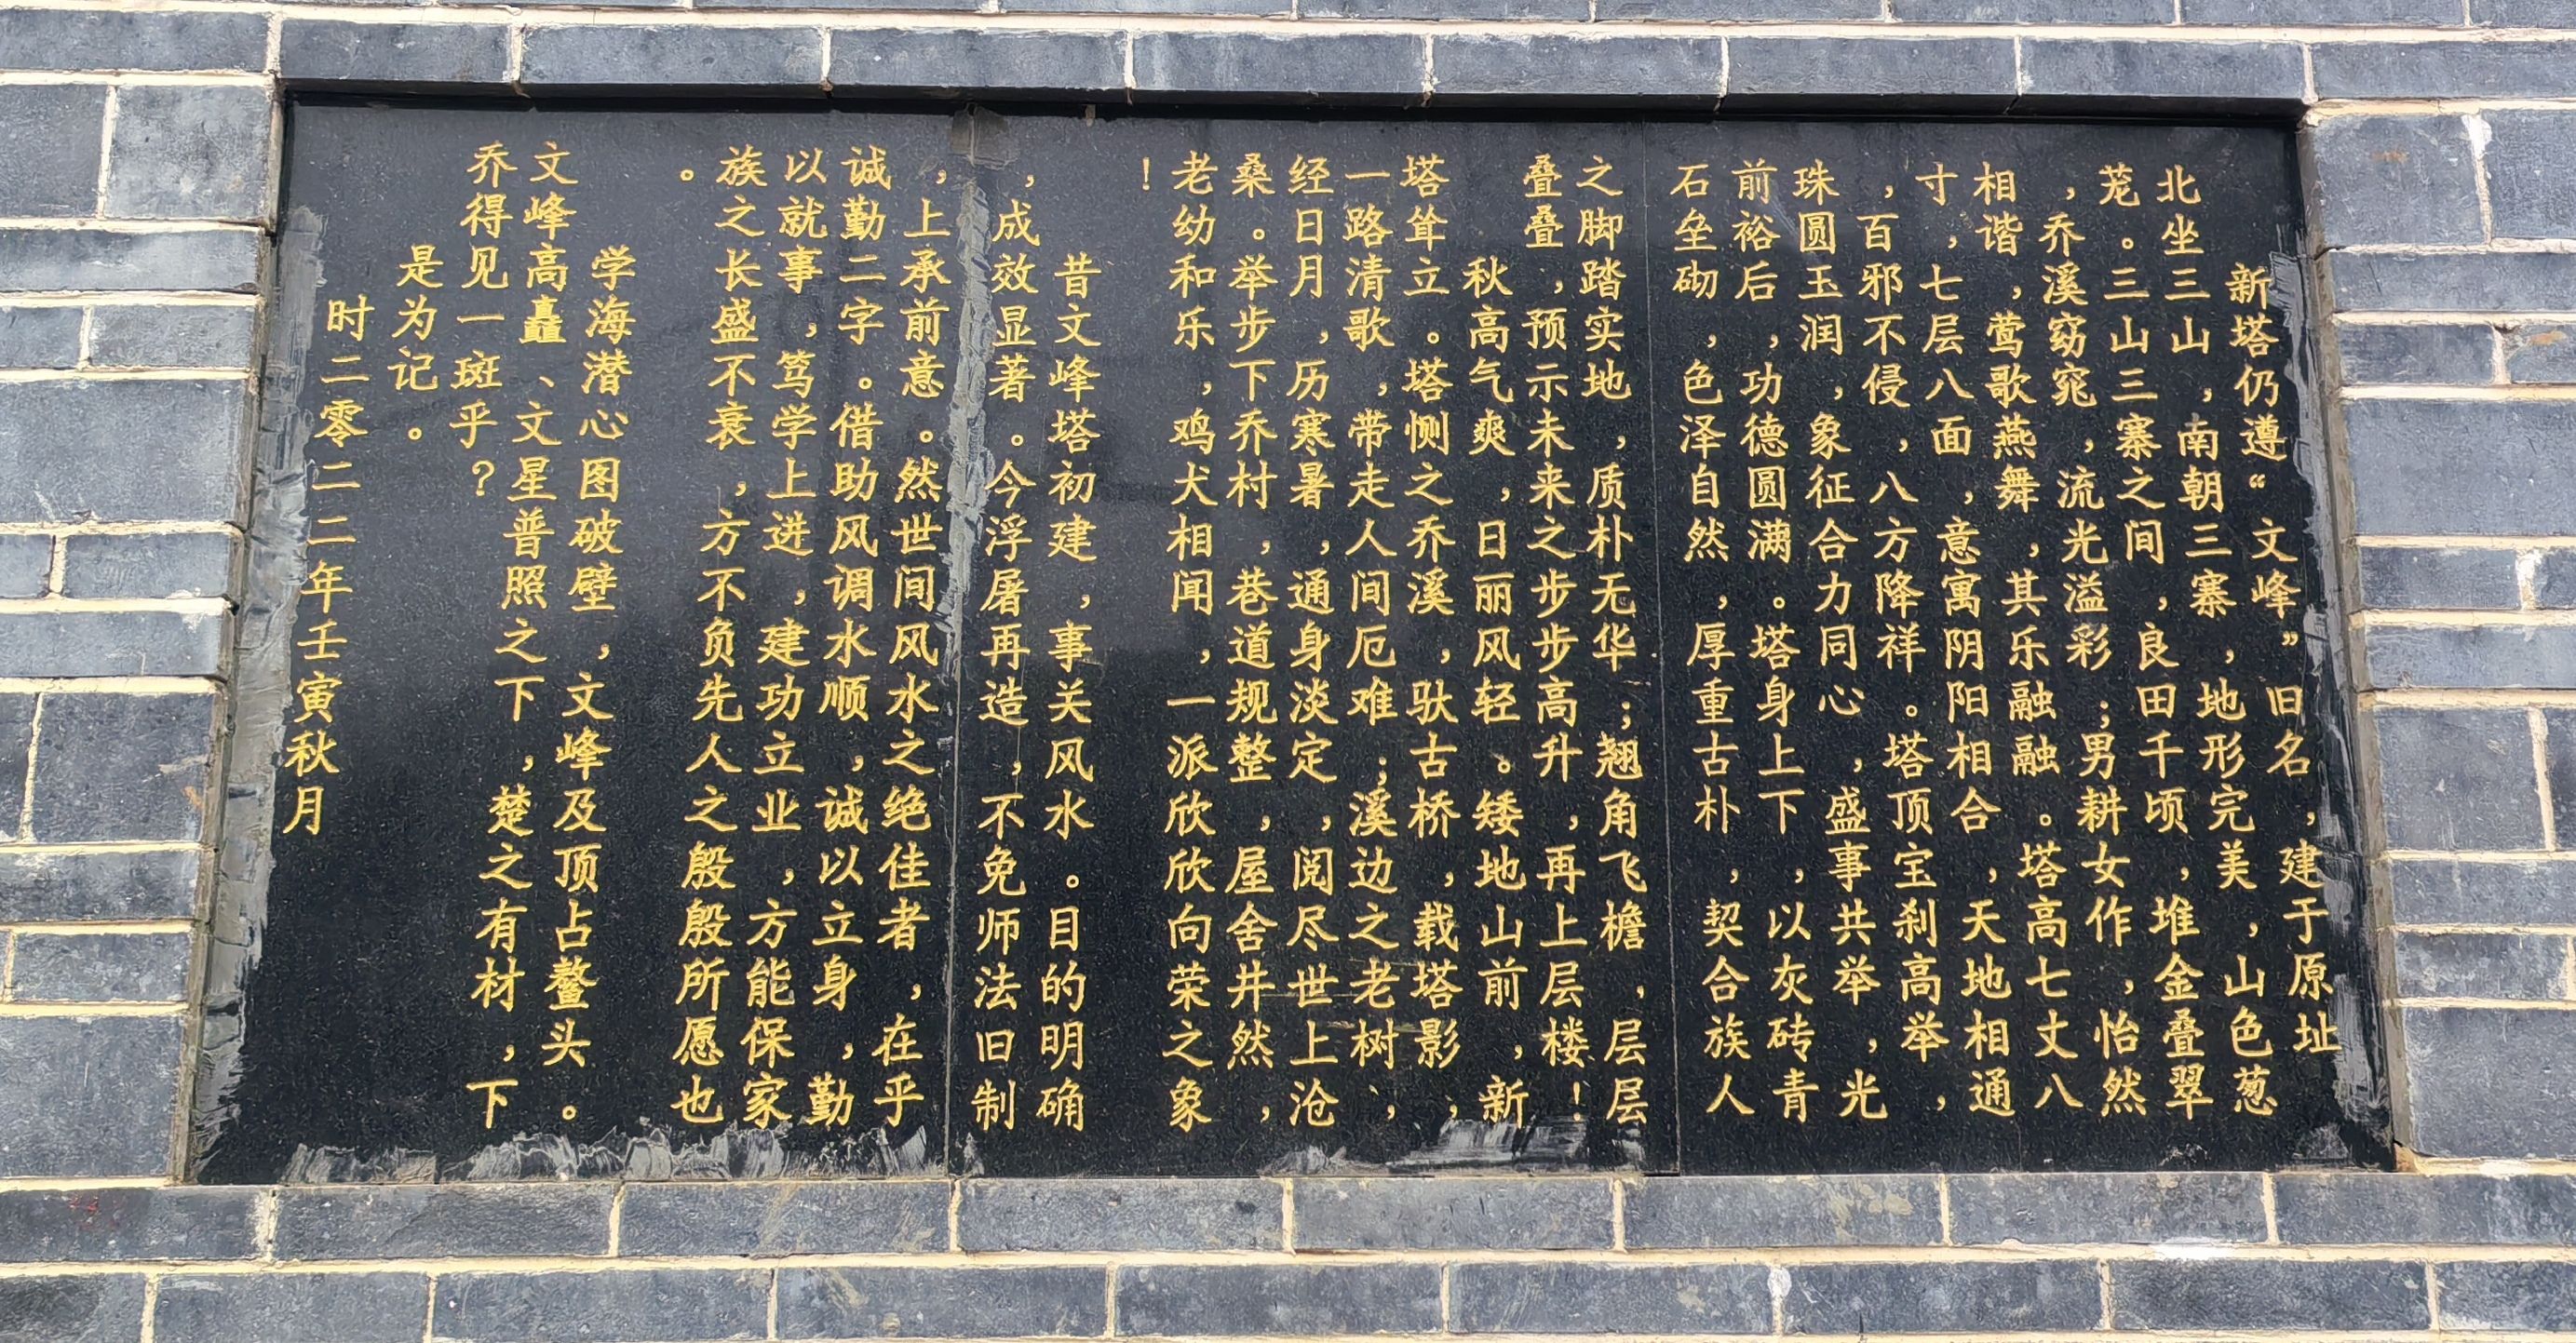 新塔仍遵“文峰”旧名，建于原址
北坐三山，南朝三寨，地形完美，山色葱
茏。三山三寨之间，良田千顷，堆金叠翠
，乔溪窈窕，流光溢彩；男耕女作，怡然
相谐，莺歌燕舞，其乐融融。塔高七丈八
寸，七层八面，意寓阴阳相合，天地相通，
，百邪不侵，八方降祥。塔顶宝刹高举，
珠圆玉润，象征合力同心，盛事共举，光
前裕后，功德圆满。塔身上下，以灰砖青
石垒砌，色泽自然，厚重古朴，契合族人
之脚踏实地，质朴无华；翘角飞檐，层层
叠叠，预示未来之步步高升，再上层楼！
秋高气爽，日丽风轻。矮地山前，新
塔耸立。塔恻之乔溪，驮古桥，载塔影，
一路清歌，带走人间厄难；溪边之老树，
经日月，历寒暑，通身淡定，阅尽世上沧
桑。举步下乔村，巷道规整，屋舍井然，
老幼和乐，鸡犬相闻，一派欣欣向荣之象
！
昔文峰塔初建，事关风水。目的明确
，成效显著。今浮屠再造，不免师法旧制
，上承前意。然世间风水之绝佳者，在乎
诚勤二字。借助风调水顺，诚以立身，勤
以就事，笃学上进，建功立业，方能保家
族之长盛不衰，方不负先人之殷殷所愿也
。
学海潜心图破壁，文峰及顶占鳌头。
文峰高矗、文星普照之下，楚之有材，下
乔得见一斑乎？
是为记。
时二零二二年壬寅秋月